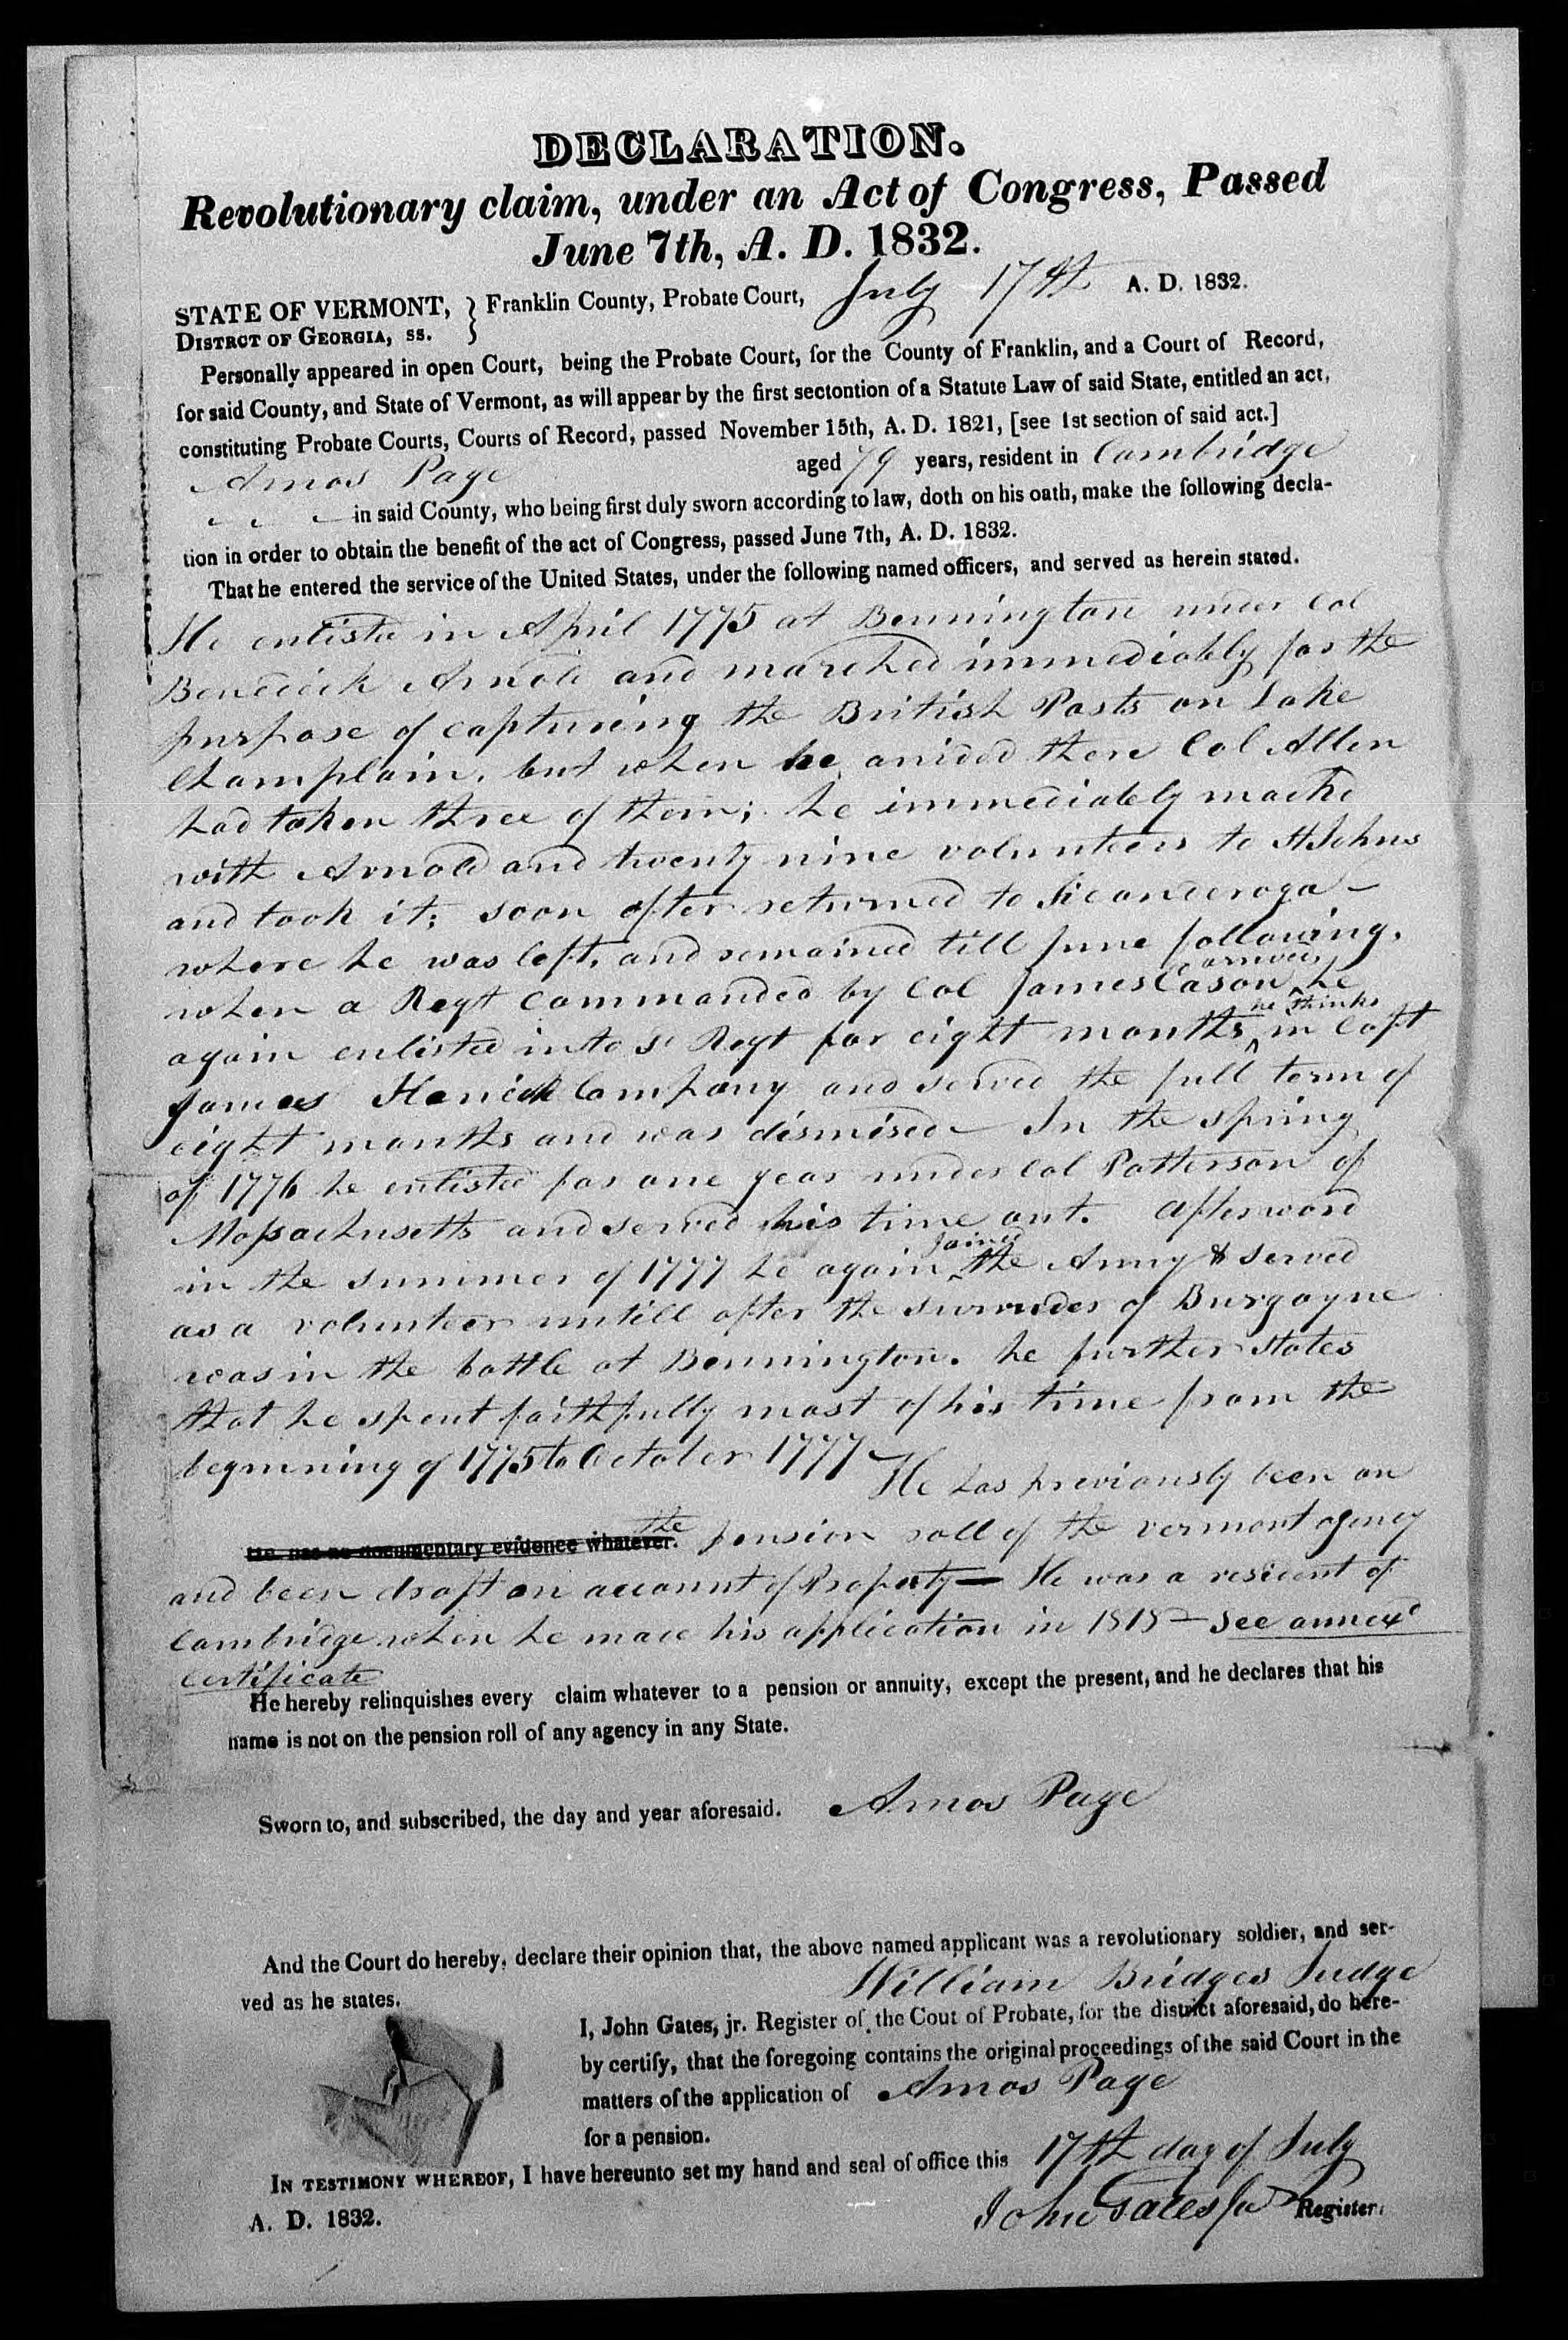 DECLARATION.
Revolutionary claim, under an Act of Congress, Passed
June 7th, A. D. 1832.
STATE OF VERMONT, } Franklin County, Probate Court, July 17th A. D. 1832.
DISTRCT OF GEORGIA, SS.
Personally appeared in open Court, being the Probate Court, for the County of Franklin, and a Court of Record,
for said County, and State of Vermont, as will appear by the first sectontion of a Statute Law of said State, entitled an act,
constituting Probate Courts, Courts of Record, passed November 15th, A. D. 1821, [see 1st section of said act.]
Amos Page aged 79 years, resident in Cambridge
in said County, who being first duly sworn according to law, doth on his oath, make the following decla-
tion in order to obtain the benefit of the act of Congress, passed June 7th, A. D. 1832.
That he entered the service of the United States, under the following named officers, and served as herein stated.
He enlisted in April 1775 at Bennington under Col
Benedick Arnold and marched immediately for the
purpose of capturing the British Posts on Lake
Champlain, but when he arrided there Col Allen
had taken three of them; he immediately marchd
with Arnold and twenty nine volunteers to St Johns
and took it; soon after returned to Ticonderoga —
where he was left, and remained till June following.
when a Regt commanded by Col James Eason arrived, he
again enlisted into sd Regt for eight months he thinks in Capt
James Company and served the full term of
eight months and was dismised — In the spring
of 1776 he enlisted for one year under Col Patterson of
Massachusetts and served his time out. afterword
in the summer of 1777 he again joined the Army & served
as a volunteer untill after the surrender of Burgoyne
was in the battle at Bennington. he further states
that he spent faithfully most of his time from the
beginning of 1775 to October 1777 — He has previously been on
He has no documentary evidence whatever. the pension roll of the vermont agency
and been dropt on account of Property — He was a resident of
Cambridge when he made his application in 1818 — See annexd
certificate
He hereby relinquishes every claim whatever to a pension or annuity, except the present, and he declares that his
name is not on the pension roll of any agency in any State.
Sworn to, and subscribed, the day and year aforesaid. Amos Page
And the Court do hereby, declare their opinion that, the above named applicant was a revolutionary soldier, and ser-
ved as he states. William Bridges Judge
I, John Gates, jr. Register of the Cout of Probate, for the district aforesaid, do here-
by certify, that the foregoing contains the original proceedings of the said Court in the
matters of the application of Amos Page
for a pension.
IN TESTIMONY WHEREOF, I have hereunto set my hand and seal of office this 17th day of July
A. D. 1832. John Gates Jr Register.